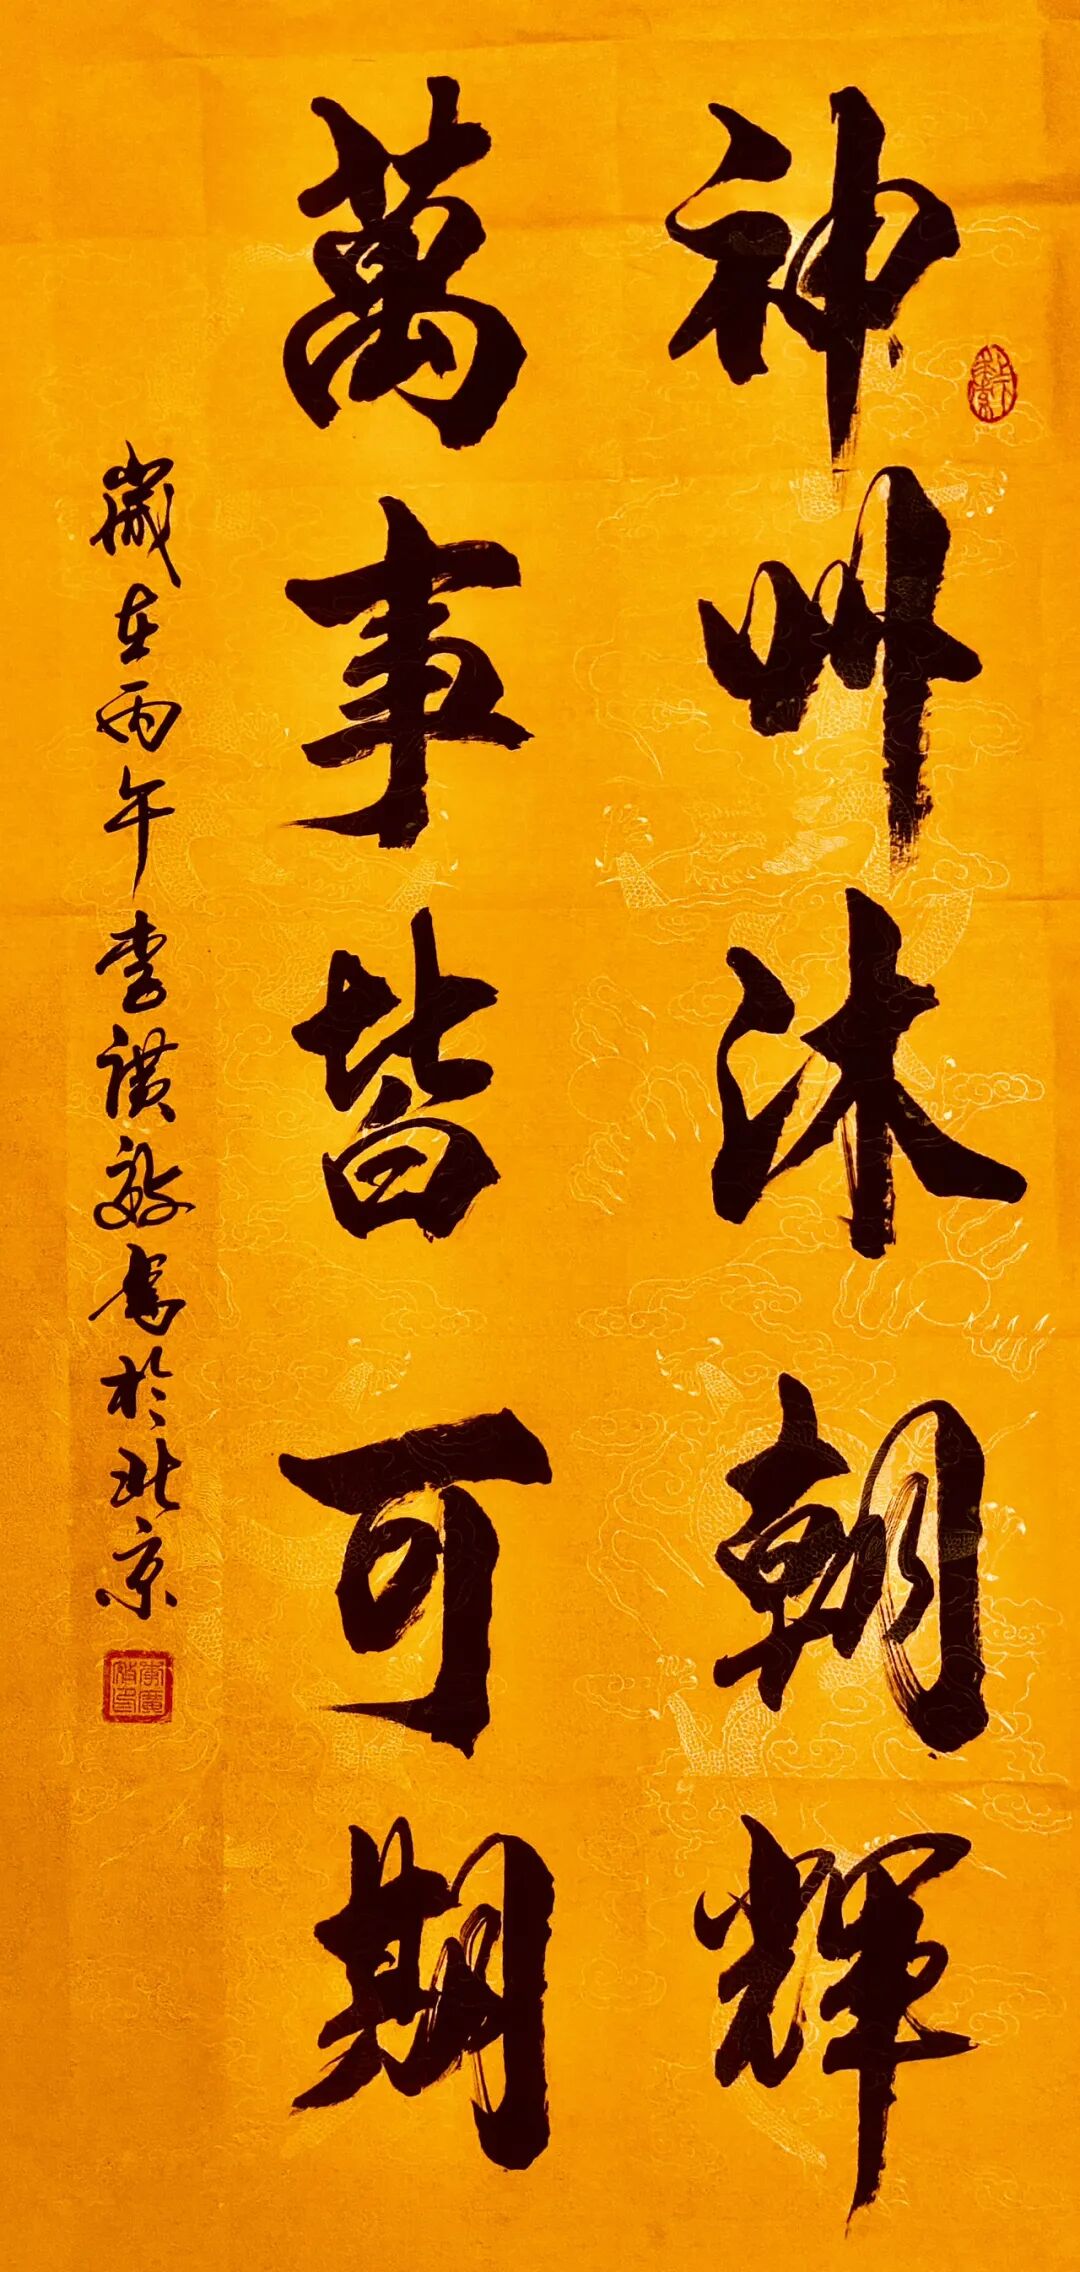 神州沐朝輝
萬事皆可期
歲在丙午李於北京